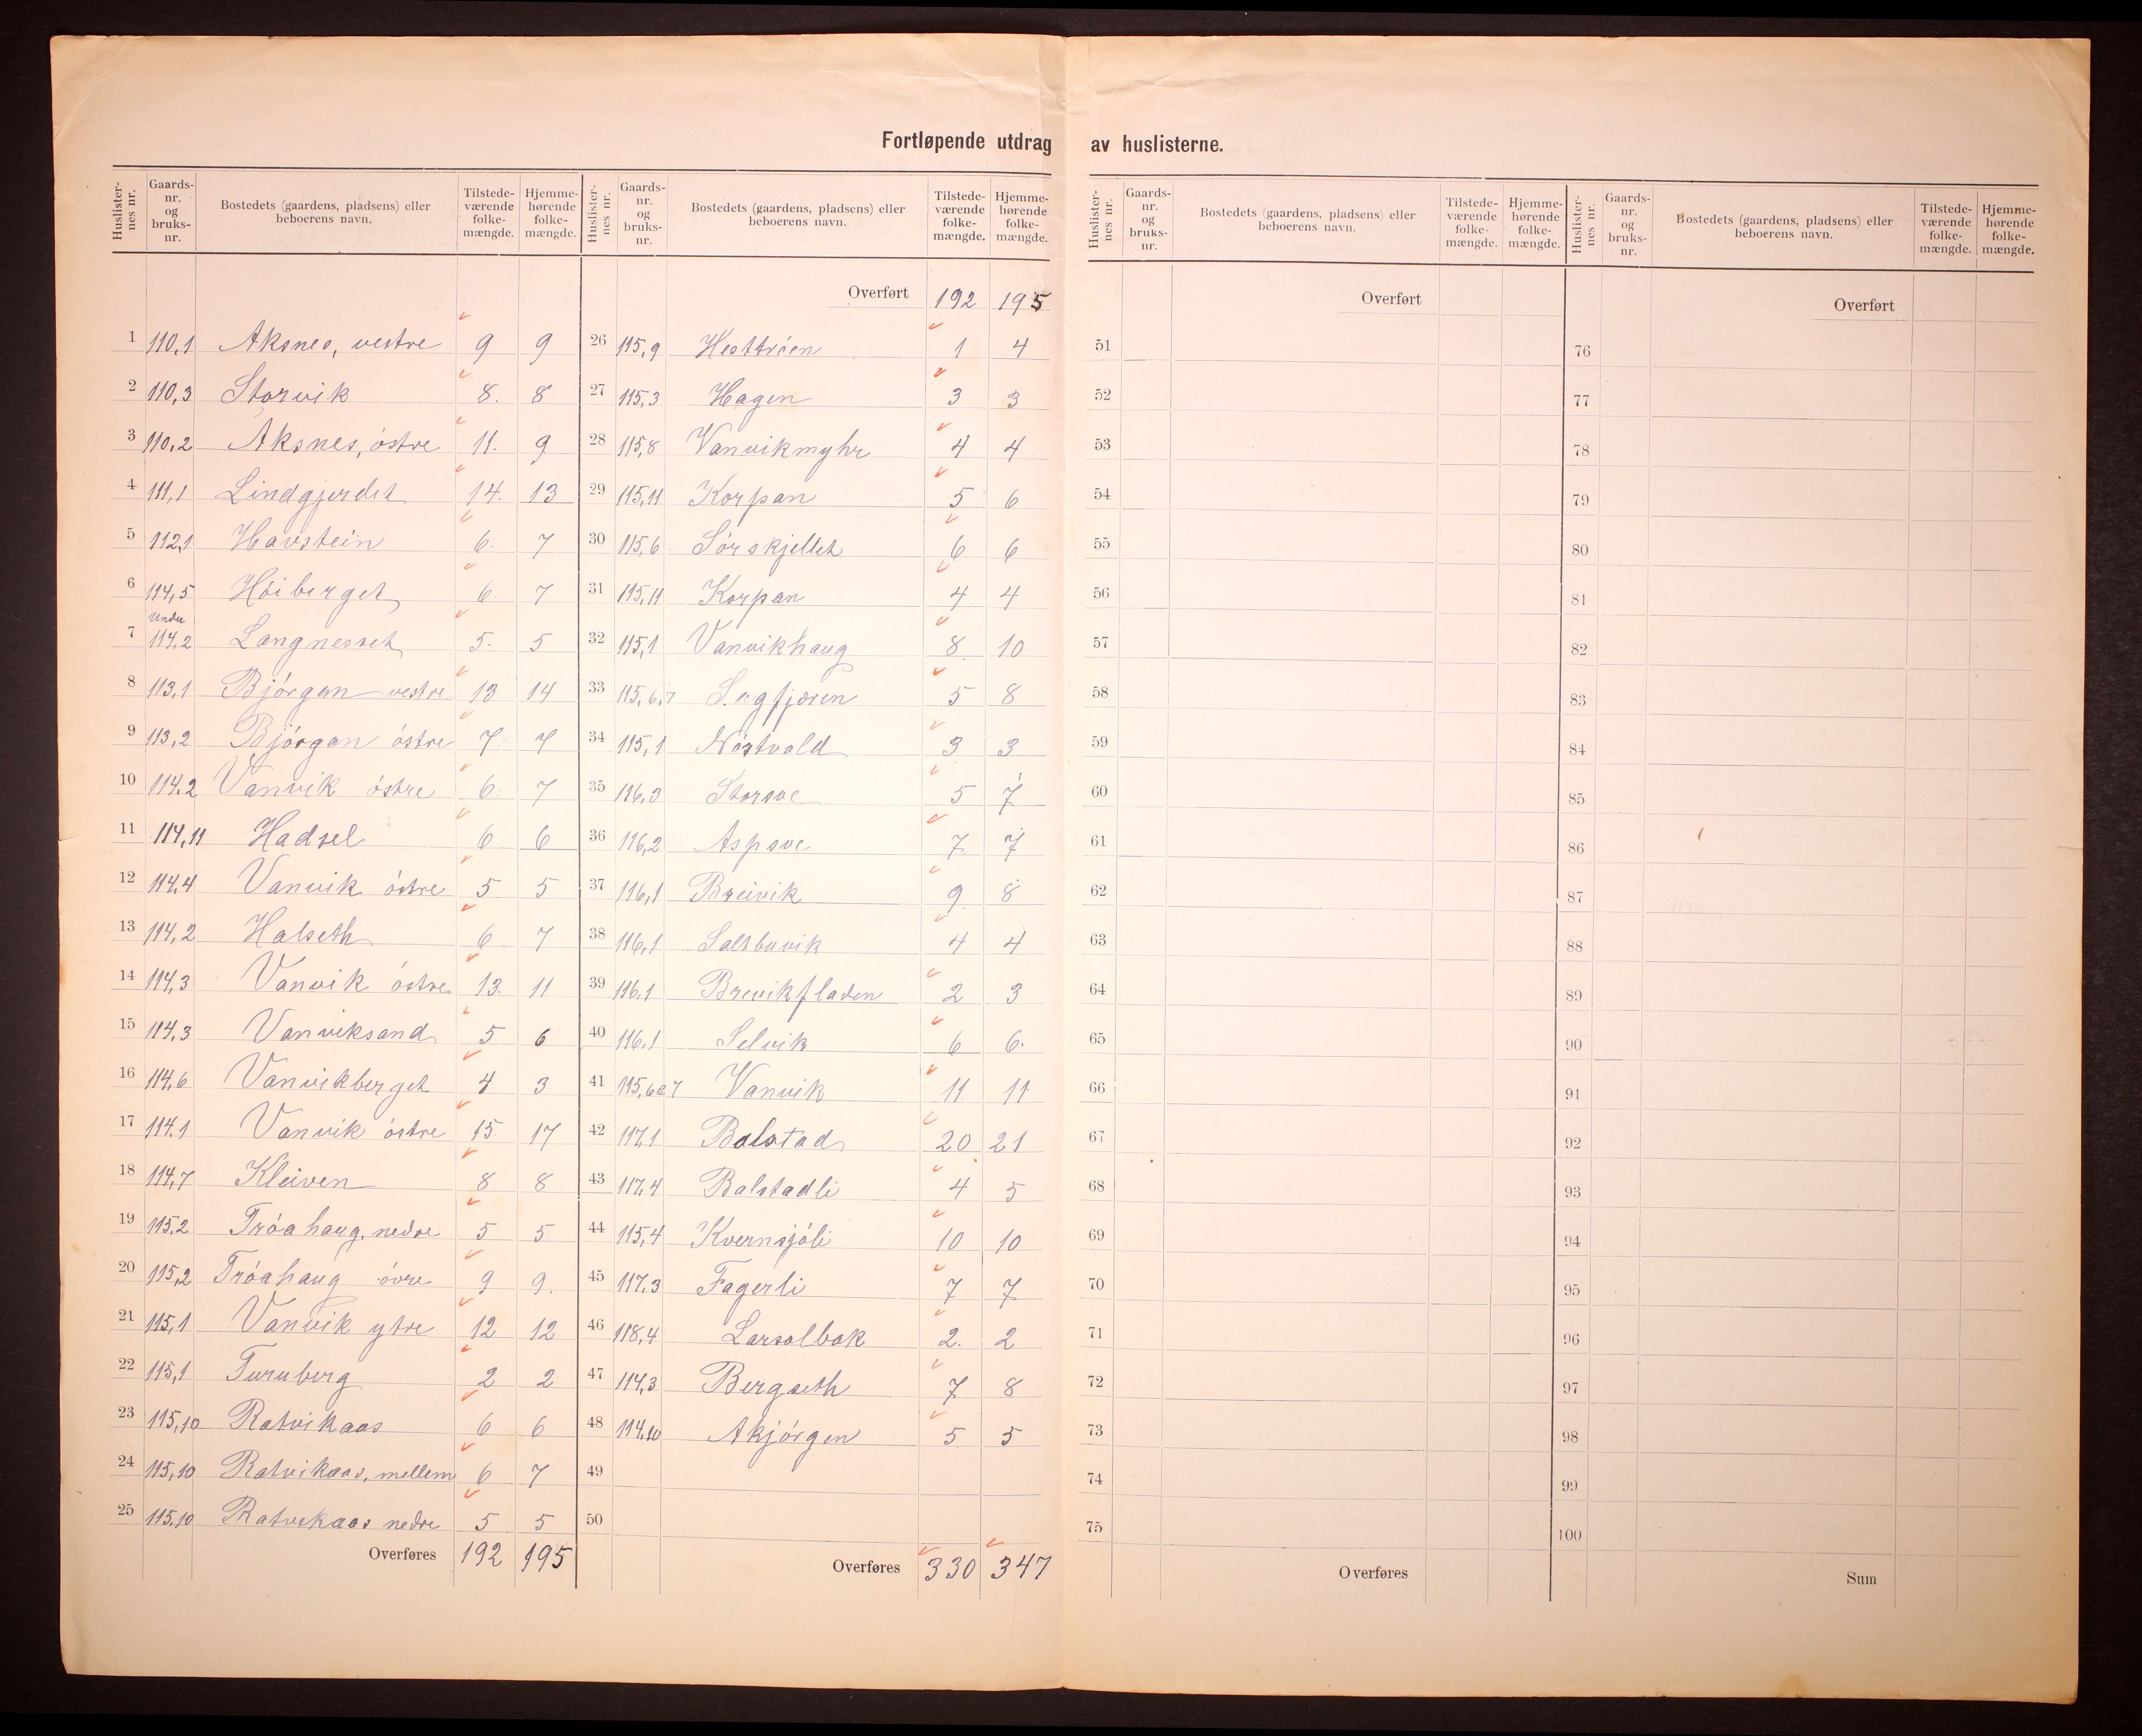 Fortløpende utdrag av huslisterne.
Huslister-nes nr. Gaards-nr. og bruks-nr. Bostedets (gaardens, pladsens) eller beboerens navn. Tilstede-værende folke-mængde. Hjemme-hørende folke-mængde.
1 110,1 Aksnes, vestre 9 9
2 110,3 Storvik 8. 8
3 110,2 Aksnes, östre 11. 9
4 111,1 Lindgjerdet 14. 13
5 112,1 Havstein 6. 7
6 114,5 Höiberget 6. 7
7 Under 114.2 Langnesset 5. 5
8 113,1 Björgan vestre 13 14
9 113,2 Björgan östre 7. 7
10 114.2 Vanvik östre 6. 7
11 114,11 Hadsel 6 6
12 114,4 Vanvik östre 5 5
13 114,2 Halseth 6 7
14 114,3 Vanvik östre 13. 11
15 114,3 Vanviksand 5 6
16 114,6 Vanvikberget 4 3.
17 114.1 Vanvik östre 15 17
18 114,7 Kleiven 8 8
19 115.2 Tröahaug, nedre 5 5
20 115,2 Tröahaug övre 9 9.
21 115,1 Vanvik ytre 12 12
22 115,1 Furuberg 2 2
23 115,10 Ratvikaas 6 6
24 115,10 Ratvikaas, mellem 6 7
25 115.10 Ratvikaas nedre 5 5
Overføres 192 195
Huslister-nes nr. Gaards-nr. og bruks-nr. Bostedets (gaardens, pladsens) eller beboerens navn. Tilstede-værende folke-mængde. Hjemme-hørende folke-mængde.
Overført 192 195
26 115,9 Hesttröen 1 4
27 115,3 Hagen 3 3
28 115,8 Vanvikmyhr 4 4
29 115,11 Korpan 5 6
30 115,6 Sörskjellet 6 6
31 115,11 Korpan 4 4
32 115,1 Vanvikhaug 8. 10
33 115,6,7 Sagfjæren 5 8
34 115,1 Nöstvold 3 3
35 116,3 Storsve 5 7
36 116,2 Aspsve 7. 7
37 116,1 Breivik 9. 8
38 116,1 Saltbuvik 4 4
39 116.1 Brevikfladen 2 3
40 116.1 Selvik 6 6.
41 115,6a7 Vanvik 11. 11
42 117,1 Balstad 20 21
43 117,4 Balstadli 4 5
44 115,4 Kvernsjöli 10 10
45 117.3 Fagerli 7 7
46 118,4 Larsolbak 2. 2
47 114,3 Bergseth 7 8
48 114.10 Akjörgen 5 5
49
50
Overføres 330 347
Huslister-nes nr. Gaards-nr. og bruks-nr. Bostedets (gaardens, pladsens) eller beboerens navn. Tilstede-værende folke-mængde. Hjemme-hørende folke-mængde.
Overført
51
52
53
54
55
56
57
58
59
60
61
62
63
64
65
66
67
68
69
70
71
72
73
74
75
Overføres
Huslister-nes nr. Gaards-nr. og bruks-nr. Bostedets (gaardens, pladsens) eller beboerens navn. Tilstede-værende folke-mængde. Hjemme-hørende folke-mængde.
Overført
76
77
78
79
80
81
82
83
84
85
86
87
88
89
90
91
92
93
94
95
96
97
98
99
100
Sum